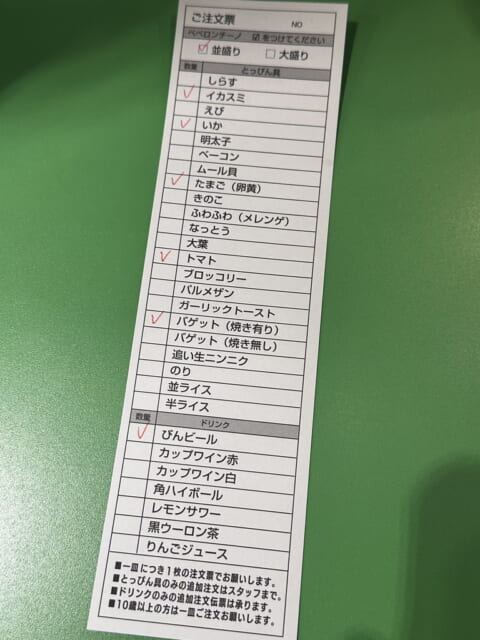 ご注文票 NO
ペペロンチーノ ☑をつけてください
☑ 並盛り □ 大盛り
数量 とっぴん具
しらす
✓ イカスミ
えび
✓ いか
明太子
ベーコン
ムール貝
✓ たまご（卵黄）
きのこ
ふわふわ（メレンゲ）
なっとう
大葉
✓ トマト
ブロッコリー
パルメザン
ガーリックトースト
✓ バゲット（焼き有り）
バゲット（焼き無し）
追い生ニンニク
のり
並ライス
半ライス
数量 ドリンク
✓ びんビール
カップワイン赤
カップワイン白
角ハイボール
レモンサワー
黒ウーロン茶
りんごジュース
■一皿につき1枚の注文票でお願いします。
■とっぴん具のみの追加注文はスタッフまで。
■ドリンクのみの追加注文伝票は承ります。
■10歳以上の方は一皿ご注文お願いします。